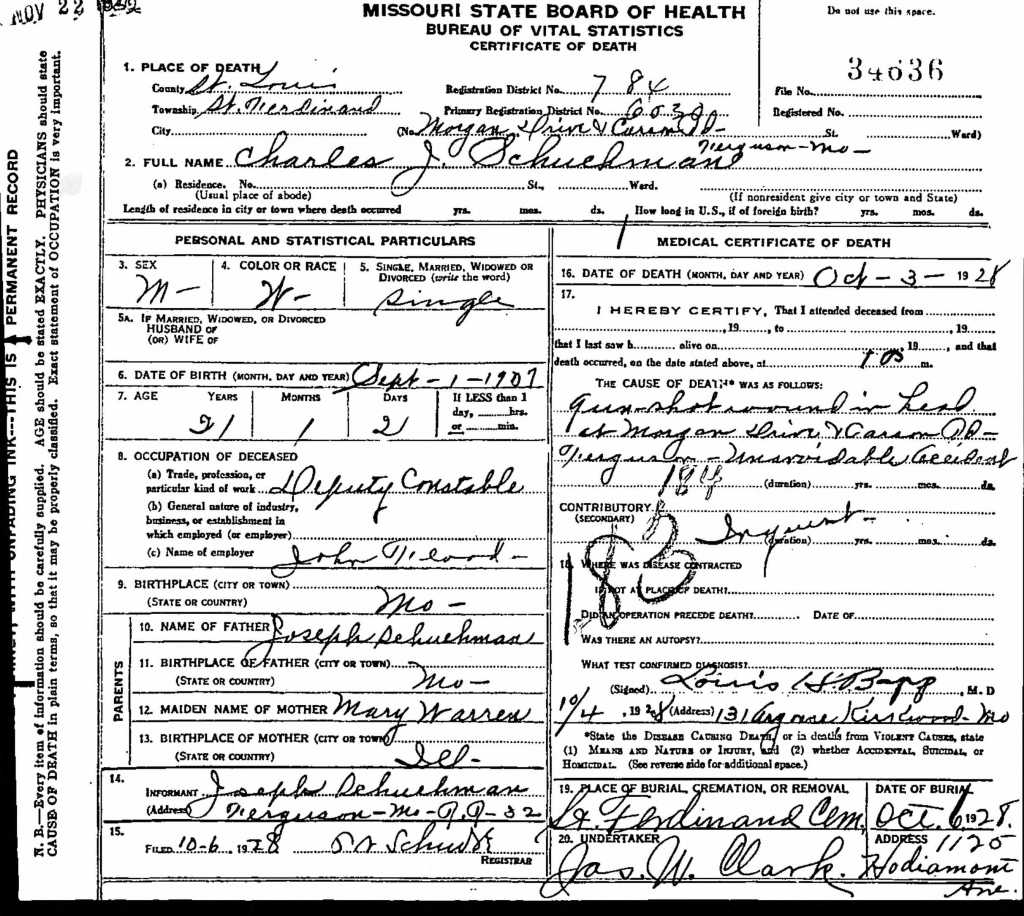 NOV 22
MISSOURI STATE BOARD OF HEALTH
BUREAU OF VITAL STATISTICS
CERTIFICATE OF DEATH
Do not use this space.
34636
1. PLACE OF DEATH
County St. Louis Registration District No. 784 File No.
Township St. Ferdinand Primary Registration District No. 6030 Registered No.
City (No. Morgan Drive & Carson Rd- St. Ward)
Ferguson-Mo-
2. FULL NAME Charles J. Schuchman
(a) Residence. No. St., Ward.
(Usual place of abode) (If nonresident give city or town and State)
Length of residence in city or town where death occurred yrs. mos. ds. How long in U.S., if of foreign birth? yrs. mos. ds.
PERSONAL AND STATISTICAL PARTICULARS
3. SEX 4. COLOR OR RACE 5. SINGLE, MARRIED, WIDOWED OR
DIVORCED (write the word)
M- W- Single
5A. IF MARRIED, WIDOWED, OR DIVORCED
HUSBAND OF
(OR) WIFE OF
6. DATE OF BIRTH (MONTH, DAY AND YEAR) Sept-1-1907
7. AGE YEARS MONTHS DAYS If LESS than 1
day, hrs.
or min.
21 1 2
8. OCCUPATION OF DECEASED
(a) Trade, profession, or
particular kind of work Deputy Constable
(b) General nature of industry,
business, or establishment in
which employed (or employer)
(c) Name of employer John
9. BIRTHPLACE (CITY OR TOWN)
(STATE OR COUNTRY) Mo-
PARENTS
10. NAME OF FATHER Joseph Schuchman
11. BIRTHPLACE OF FATHER (CITY OR TOWN)
(STATE OR COUNTRY) Mo-
12. MAIDEN NAME OF MOTHER Mary Warren
13. BIRTHPLACE OF MOTHER (CITY OR TOWN)
(STATE OR COUNTRY) Ill-
14.
INFORMANT Joseph Schuchman
(Address) Ferguson-Mo-R.R-32
15.
FILED 10-6, 1928
REGISTRAR
MEDICAL CERTIFICATE OF DEATH
16. DATE OF DEATH (MONTH, DAY AND YEAR) Oct-3- 1928
17.
I HEREBY CERTIFY, That I attended deceased from
, 19 , to , 19
that I last saw h alive on , 19 , and that
death occurred, on the date stated above, at m.
THE CAUSE OF DEATH* WAS AS FOLLOWS:
Gun-shot wound in head
at Morgan Drive & Carson Rd-
Ferguson- Unavoidable Accident
184 (duration) yrs. mos. ds.
CONTRIBUTORY
(SECONDARY) Inquest-
(duration) yrs. mos. ds.
183
18. WHERE WAS DISEASE CONTRACTED
IF NOT AT PLACE OF DEATH?
DID AN OPERATION PRECEDE DEATH? DATE OF
WAS THERE AN AUTOPSY?
WHAT TEST CONFIRMED DIAGNOSIS?
(Signed) Louis H. Bopp, M. D
10/4, 1928 (Address) 131 Argonne Kirkwood-Mo
*State the DISEASE CAUSING DEATH, or in deaths from VIOLENT CAUSES, state
(1) MEANS AND NATURE OF INJURY, and (2) whether ACCIDENTAL, SUICIDAL, or
HOMICIDAL. (See reverse side for additional space.)
19. PLACE OF BURIAL, CREMATION, OR REMOVAL DATE OF BURIAL
St. Ferdinand Cem, Oct. 6, 1928.
20. UNDERTAKER ADDRESS 1125
Jas. W. Clark. Hodiamont
Ave.
WITH UNFADING INK---THIS IS A PERMANENT RECORD
N. B.—Every item of information should be carefully supplied. AGE should be stated EXACTLY. PHYSICIANS should state
CAUSE OF DEATH in plain terms, so that it may be properly classified. Exact statement of OCCUPATION is very important.